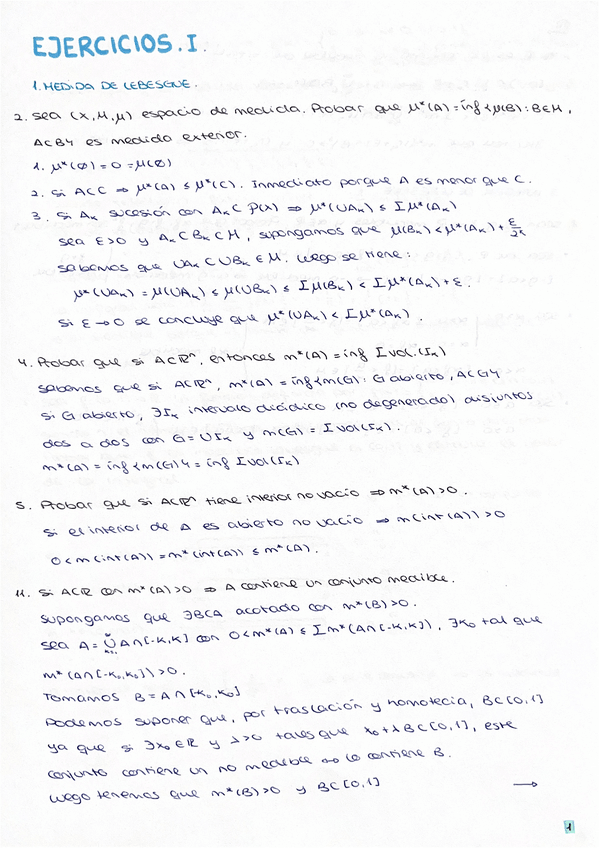 EJERCICIOS. I.
1. MEDIDA DE LEBESGUE.
2. Sea (X, M, μ) espacio de medida. Probar que μ*(A) = inf {μ(B) : B∈M,
A⊂B} es medida exterior.
1. μ*(∅) = 0 = μ(∅)
2. Si A⊂C ⇒ μ*(A) ≤ μ*(C). Inmediato porque A es menor que C.
3. Si Aₖ sucesión con Aₖ ⊂ P(X) ⇒ μ*(∪Aₖ) ≤ Σμ*(Aₖ)
Sea ε>0 y Aₖ⊂Bₖ⊂M, supongamos que μ(Bₖ) < μ*(Aₖ) + ε/2ᵏ
sabemos que ∪Aₖ ⊂ ∪Bₖ ∈ M. Luego se tiene:
μ*(∪Aₖ) = μ(∪Aₖ) ≤ μ(∪Bₖ) ≤ Σμ(Bₖ) < Σμ*(Aₖ) + ε.
Si ε→0 se concluye que μ*(∪Aₖ) < Σμ*(Aₖ).
4. Probar que si A⊂ℝⁿ, entonces m*(A) = inf Σ vol.(Iₖ)
Sabemos que si A⊂ℝⁿ, m*(A) = inf {m(G) : G abierto, A⊂G}
Si G abierto, ∃Iₖ intervalo diádico (no degenerado) disjuntos
dos a dos con G = ∪Iₖ y m(G) = Σ vol(Iₖ).
m*(A) = inf {m(G)} = inf Σ vol(Iₖ)
5. Probar que si A⊂ℝⁿ tiene interior no vacío ⇒ m*(A) > 0.
Si el interior de A es abierto no vacío ⇒ m(int(A)) > 0
0 < m(int(A)) = m*(int(A)) ≤ m*(A).
11. Si A⊂ℝ con m*(A) > 0 ⇒ A contiene un conjunto medible.
Supongamos que ∃B⊂A acotado con m*(B) > 0.
Sea A = ∪ A∩[-k,k] con 0 < m*(A) ≤ Σ m*(A∩[-k,k]), ∃k₀ tal que
m*(A∩[-k₀,k₀]) > 0.
Tomamos B = A∩[-k₀,k₀]
Podemos suponer que, por traslación y homotecia, B⊂[0,1]
ya que si ∃x₀∈ℝ y λ>0 tales que x₀+λB⊂[0,1], este
conjunto contiene un no medible ⇔ lo contiene B.
Luego tenemos que m*(B) > 0 y B⊂[0,1] →
1